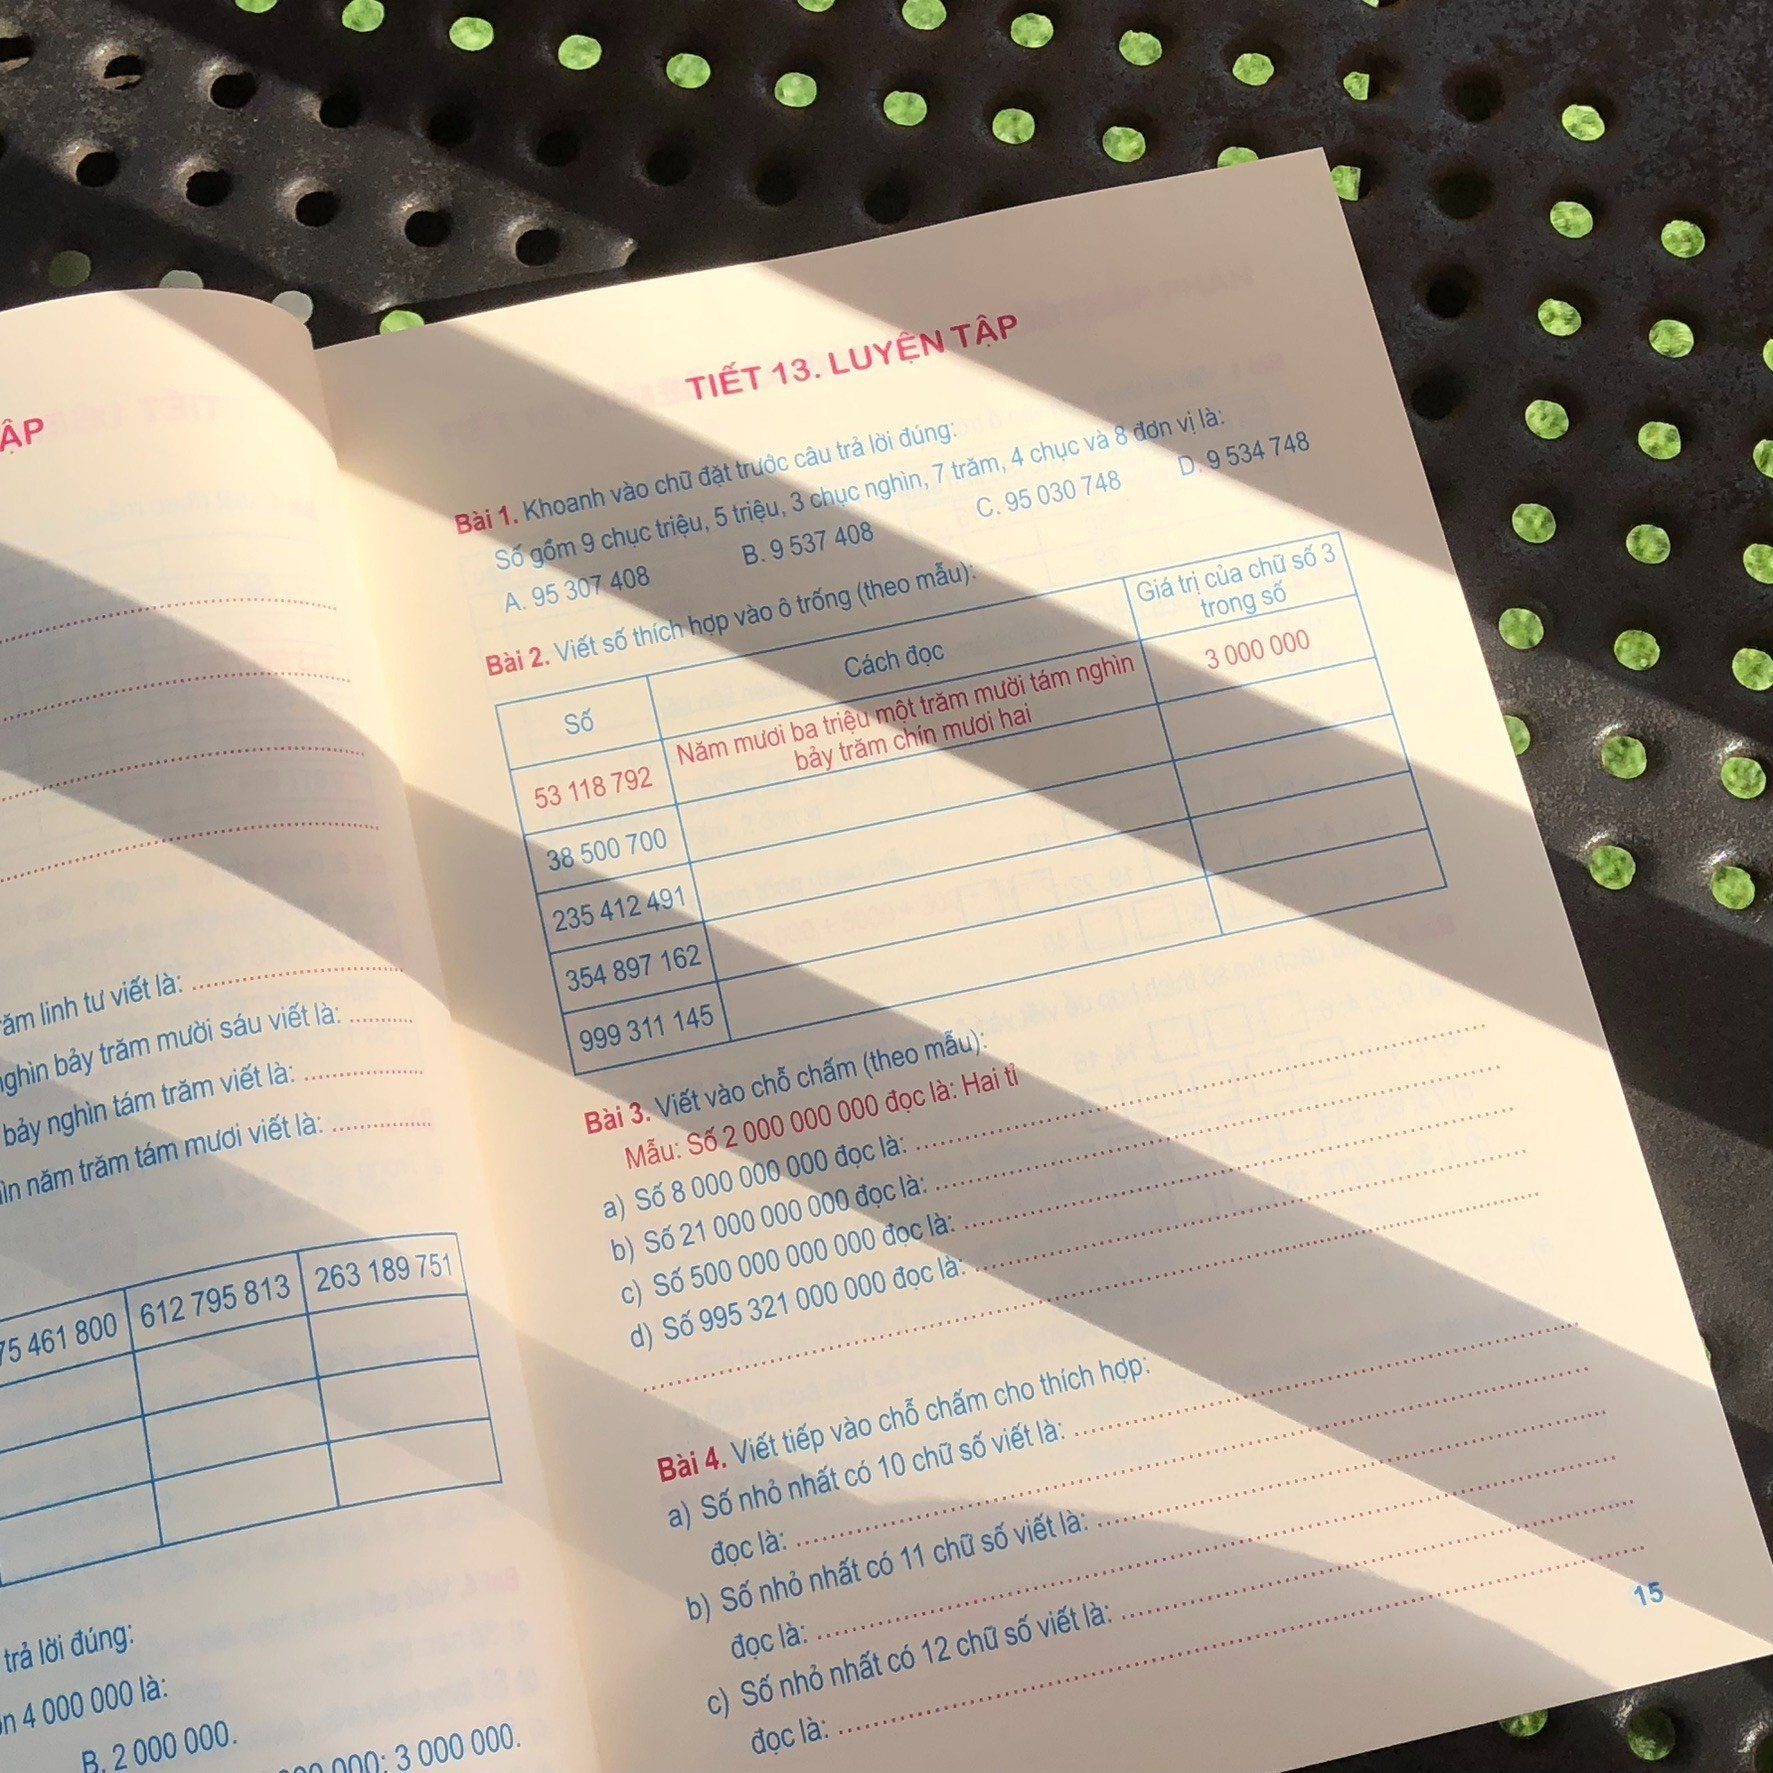 ẬP
ăm linh tư viết là:
nghìn bảy trăm mười sáu viết là:
bảy nghìn tám trăm viết là:
ìn năm trăm tám mươi viết là:
75 461 800 612 795 813 263 189 751
trả lời đúng:
4 000 000 là:
B. 2 000 000.
3 000 000.
TIẾT 13. LUYỆN TẬP
Bài 1. Khoanh vào chữ đặt trước câu trả lời đúng:
Số gồm 9 chục triệu, 5 triệu, 3 chục nghìn, 7 trăm, 4 chục và 8 đơn vị là:
A. 95 307 408 B. 9 537 408 C. 95 030 748 D. 9 534 748
Bài 2. Viết số thích hợp vào ô trống (theo mẫu):
Số Cách đọc Giá trị của chữ số 3
trong số
53 118 792 Năm mươi ba triệu một trăm mười tám nghìn 3 000 000
bảy trăm chín mươi hai
38 500 700
235 412 491
354 897 162
999 311 145
Bài 3. Viết vào chỗ chấm (theo mẫu):
Mẫu: Số 2 000 000 000 đọc là: Hai tỉ
a) Số 8 000 000 000 đọc là:
b) Số 21 000 000 000 đọc là:
c) Số 500 000 000 000 đọc là:
d) Số 995 321 000 000 đọc là:
Bài 4. Viết tiếp vào chỗ chấm cho thích hợp:
a) Số nhỏ nhất có 10 chữ số viết là:
đọc là:
b) Số nhỏ nhất có 11 chữ số viết là:
đọc là:
c) Số nhỏ nhất có 12 chữ số viết là:
đọc là:
15